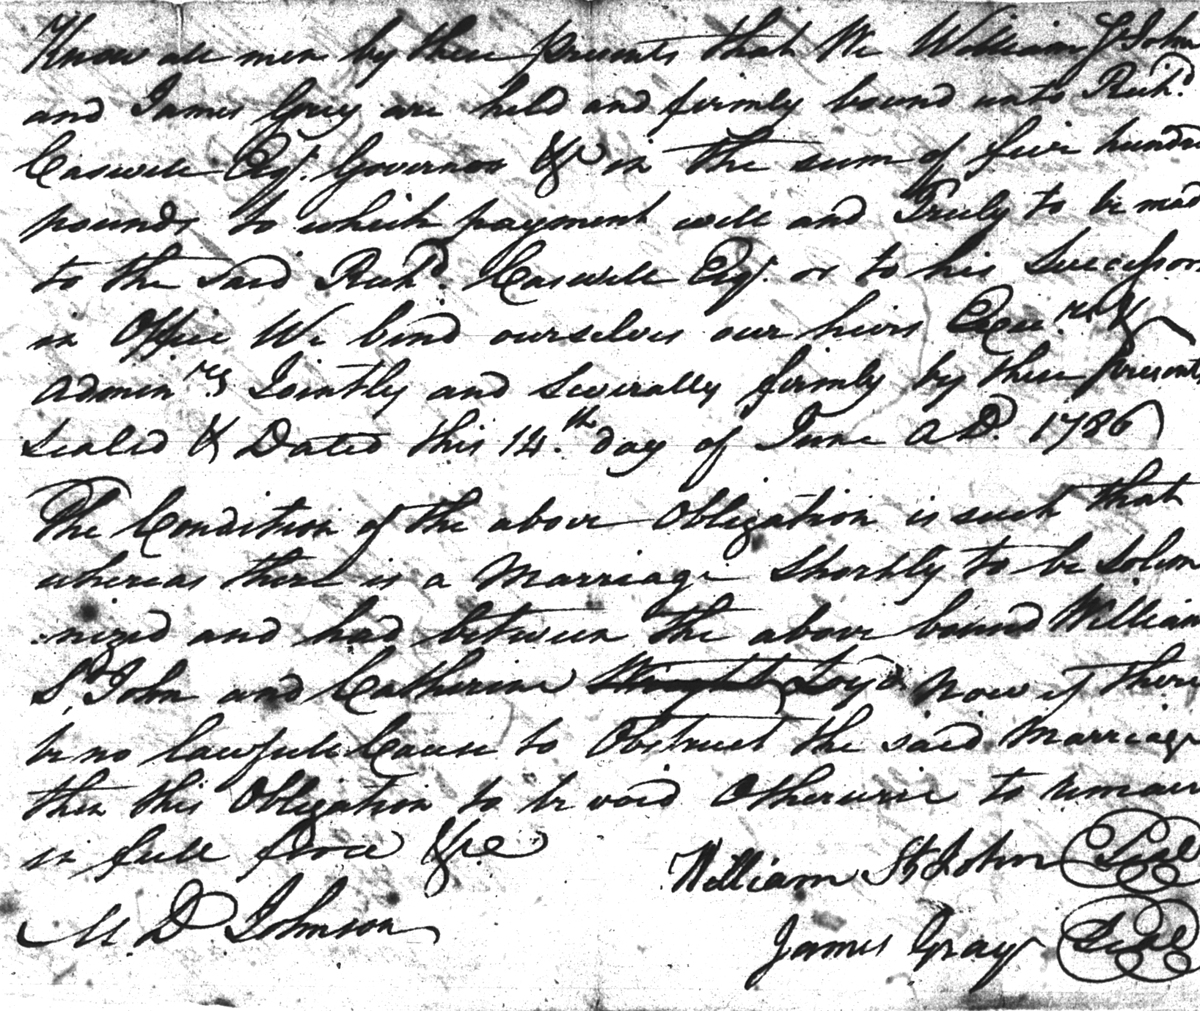 Know all men by these presents that We William St. John
and James Grey are held and firmly bound unto Richd.
Caswell Esqr. Governor &c in the sum of five hundre
pounds to which payment well and Truly to be mad
to the said Richd. Caswell Esqr. or to his Successors
in Office We bind ourselves our heirs Exeu.rs &
admin.rs Jointly and severally firmly by these presents
sealed & Dated this 14.th day of June A D. 1786
The Condition of the above Obligation is such that
whereas there is a Marriage Shortly to be Solem
nized and had between the above bound William
St. John and Catherine Now if there
be no lawfull Cause to Obstruct the said Marriage
then this Obligation to be void Otherwise to remain
in full force &c
William St John Seal
M. D Johnson
James Gray Seal